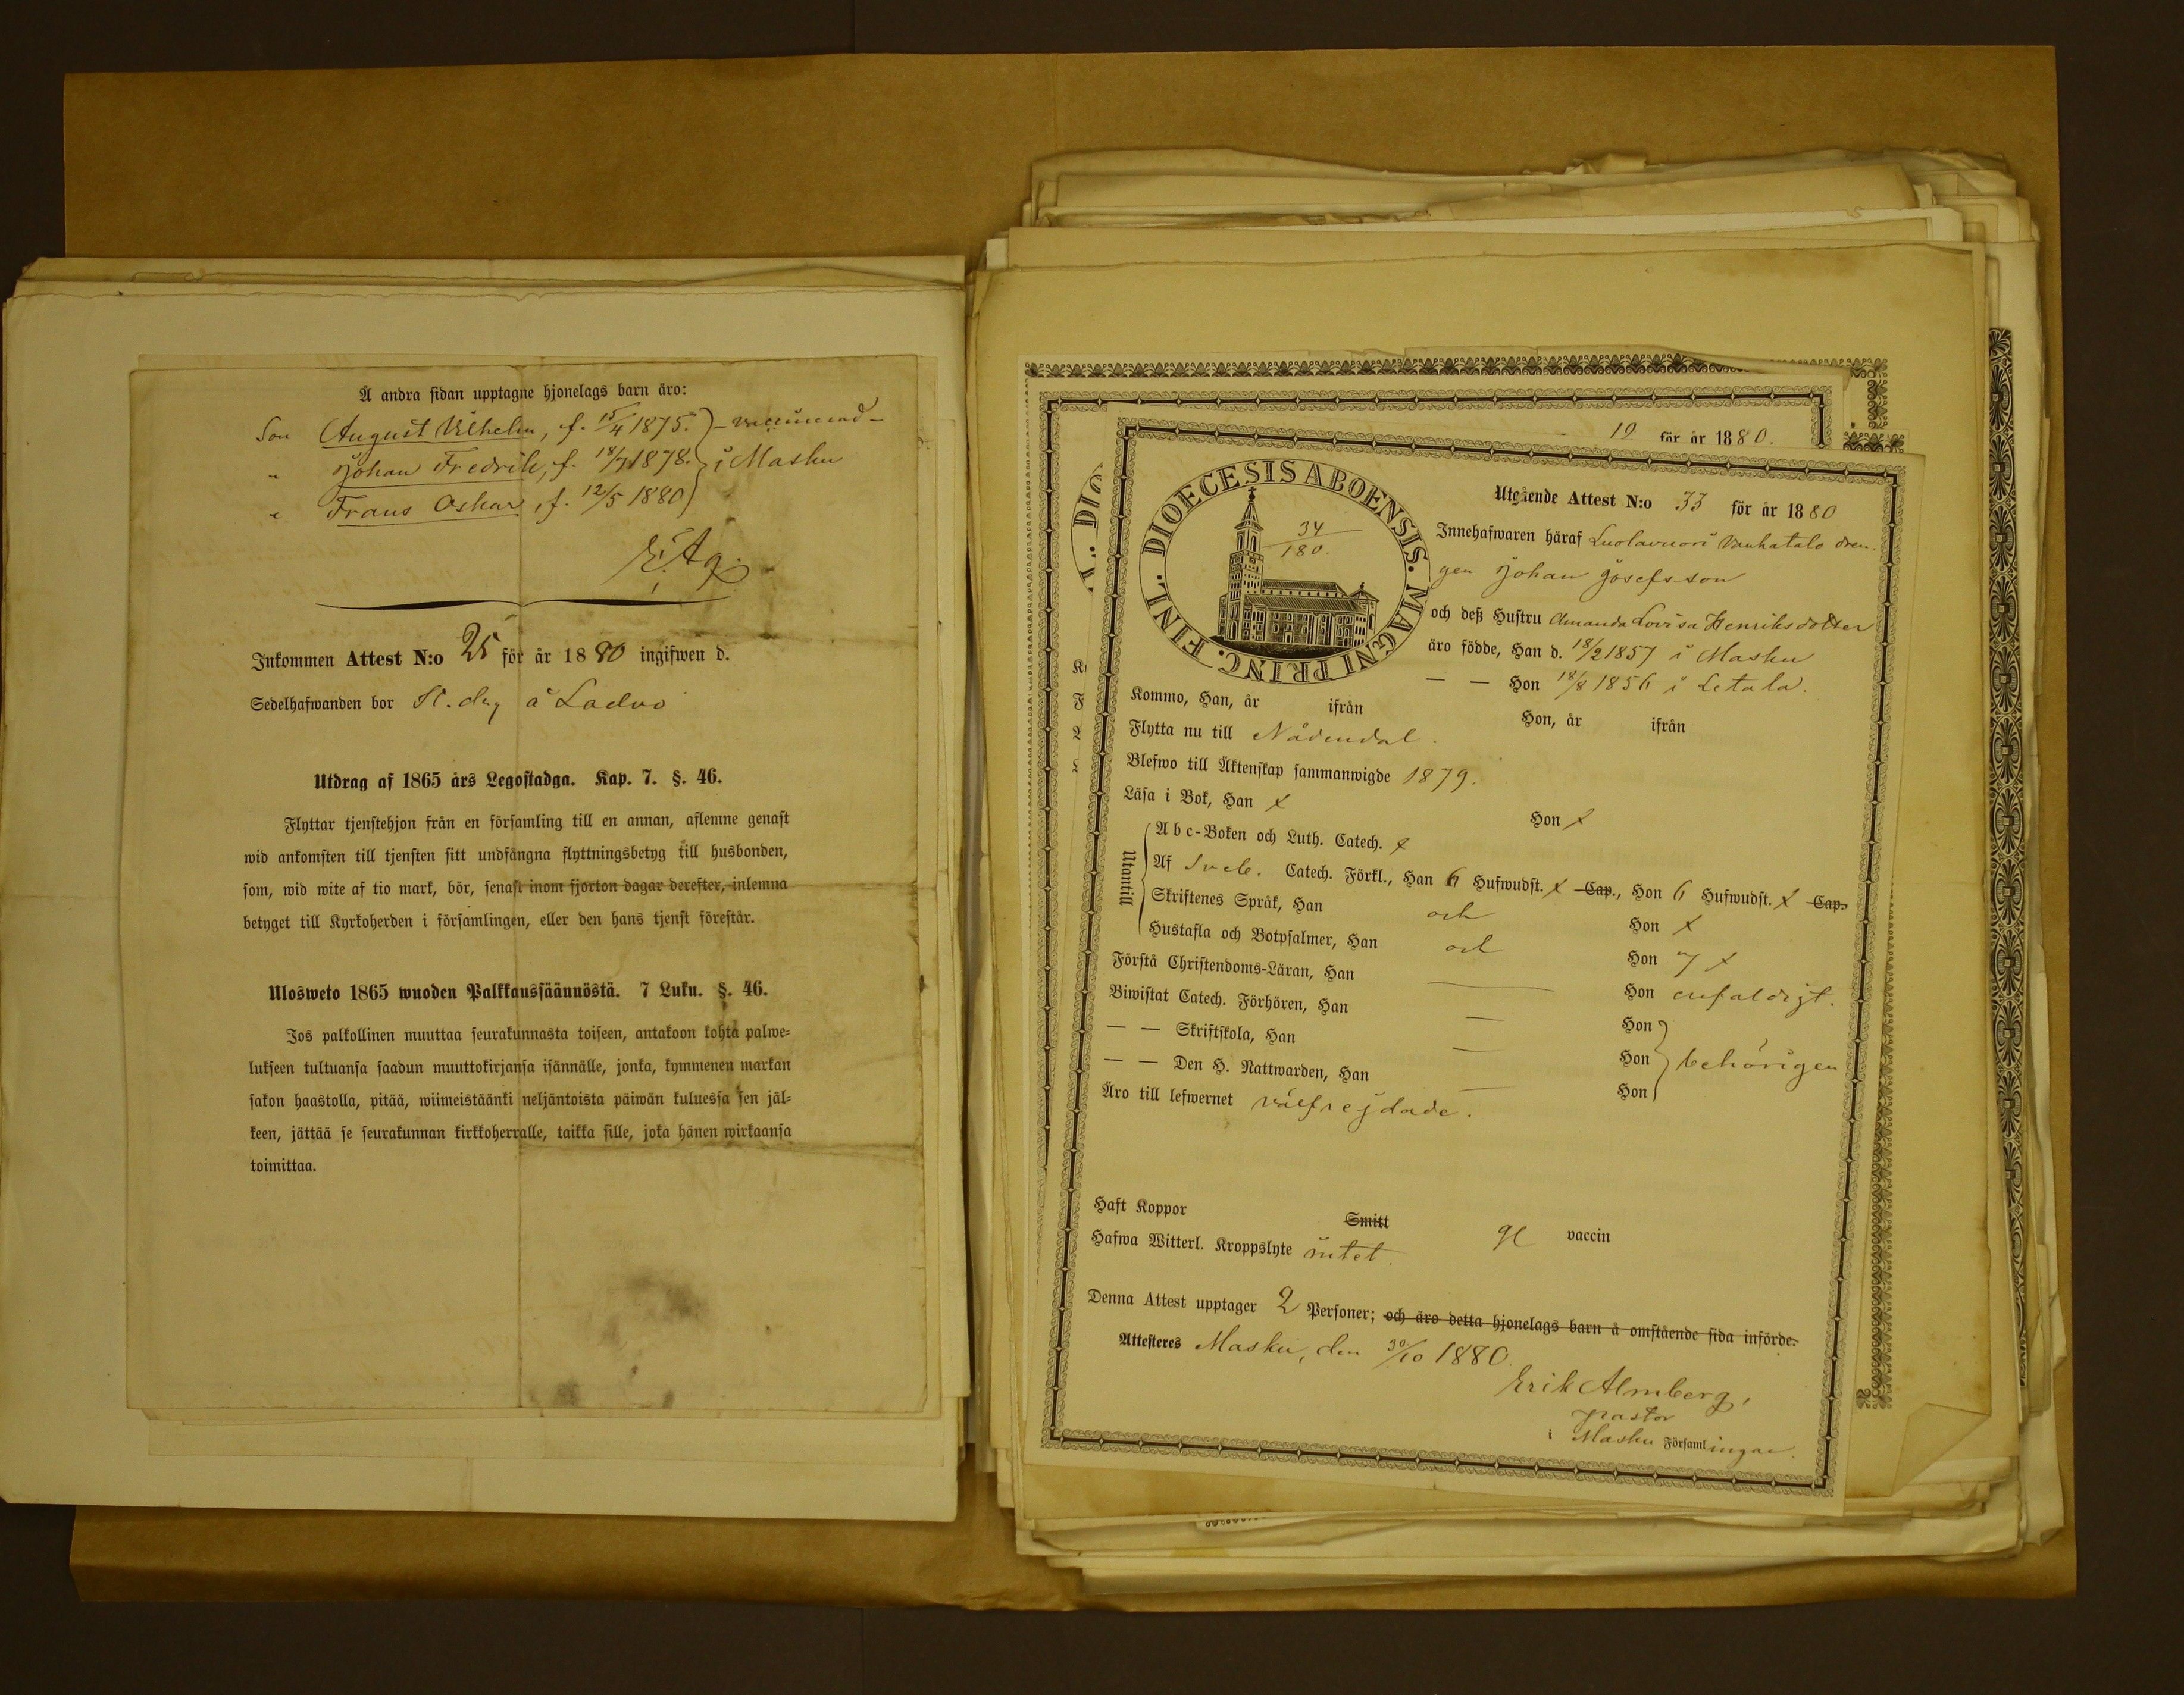 Å andra sidan upptagne hjonelags barn äro:
Son August Vilhelm, f. 15/4 1875. - vaccinerad -
" Johan Fredrik, f. 18/7 1878. i Masku
" Frans Oskar, f. 12/5 1880
E. Ag.
Inkommen Attest N:o 25 för år 1880 ingifwen d.
Sedelhafwanden bor å
Utdrag af 1865 års Legostadga. Kap. 7. §. 46.
Flyttar tjenstehjon från en församling till en annan, aflemne genast
wid ankomsten till tjensten sitt undfångna flyttningsbetyg till husbonden,
som, wid wite af tio mark, bör, senast inom fjorton dagar derefter, inlemna
betyget till Kyrkoherden i församlingen, eller den hans tjenst förestår.
Ulosweto 1865 wuoden Palkkaussäännöstä. 7 Luku. §. 46.
Jos palkollinen muuttaa seurakunnasta toiseen, antakoon kohta palwe=
lukseen tultuansa saadun muuttokirjansa isännälle, jonka, kymmenen markan
sakon haastolla, pitää, wiimeistäänki neljäntoista päiwän kuluessa sen jäl=
keen, jättää se seurakunnan kirkkoherralle, taikka sille, joka hänen wirkaansa
toimittaa.
19 för år 1880.
DIOECESIS ABOENSIS. MAGNI PRINC. FINL.
34
180.
Utgående Attest N:o 33 för år 1880
Innehafwaren häraf Luolavuori Vanhatalo dren-
gen Johan Josefsson
och deß Hustru Amanda Lovisa Henriksdotter
äro födde, Han d. 18/2 1857 i Masku
— — Hon 18/8 1856 i Letala.
Kommo, Han, år ifrån Hon, år ifrån
Flytta nu till Nådendal.
Blefwo till Äktenskap sammanwigde 1879.
Läsa i Bok, Han x Hon x
Utantill
Abc-Boken och Luth. Catech. x
Af Sveb. Catech. Förkl., Han 6 Hufwudst. x Cap., Hon 6 Hufwudst. x Cap.
Skriftenes Språk, Han och Hon x
Hustafla och Botpsalmer, Han och Hon 7 x
Förstå Christendoms-Läran, Han — Hon enfaldigt.
Biwistat Catech. Förhören, Han — Hon
— — Skriftskola, Han — Hon behörigen
— — Den H. Nattwarden, Han — Hon
Äro till lefwernet välfrejdade.
Haft Koppor Smitt vaccin
Hafwa Witterl. Kroppslyte intet
Denna Attest upptager 2 Personer; och äro detta hjonelags barn å omstående sida införde.
Attesteres Masku, den 30/10 1880.
Erik Almberg,
Pastor
i Masku Församlingar.